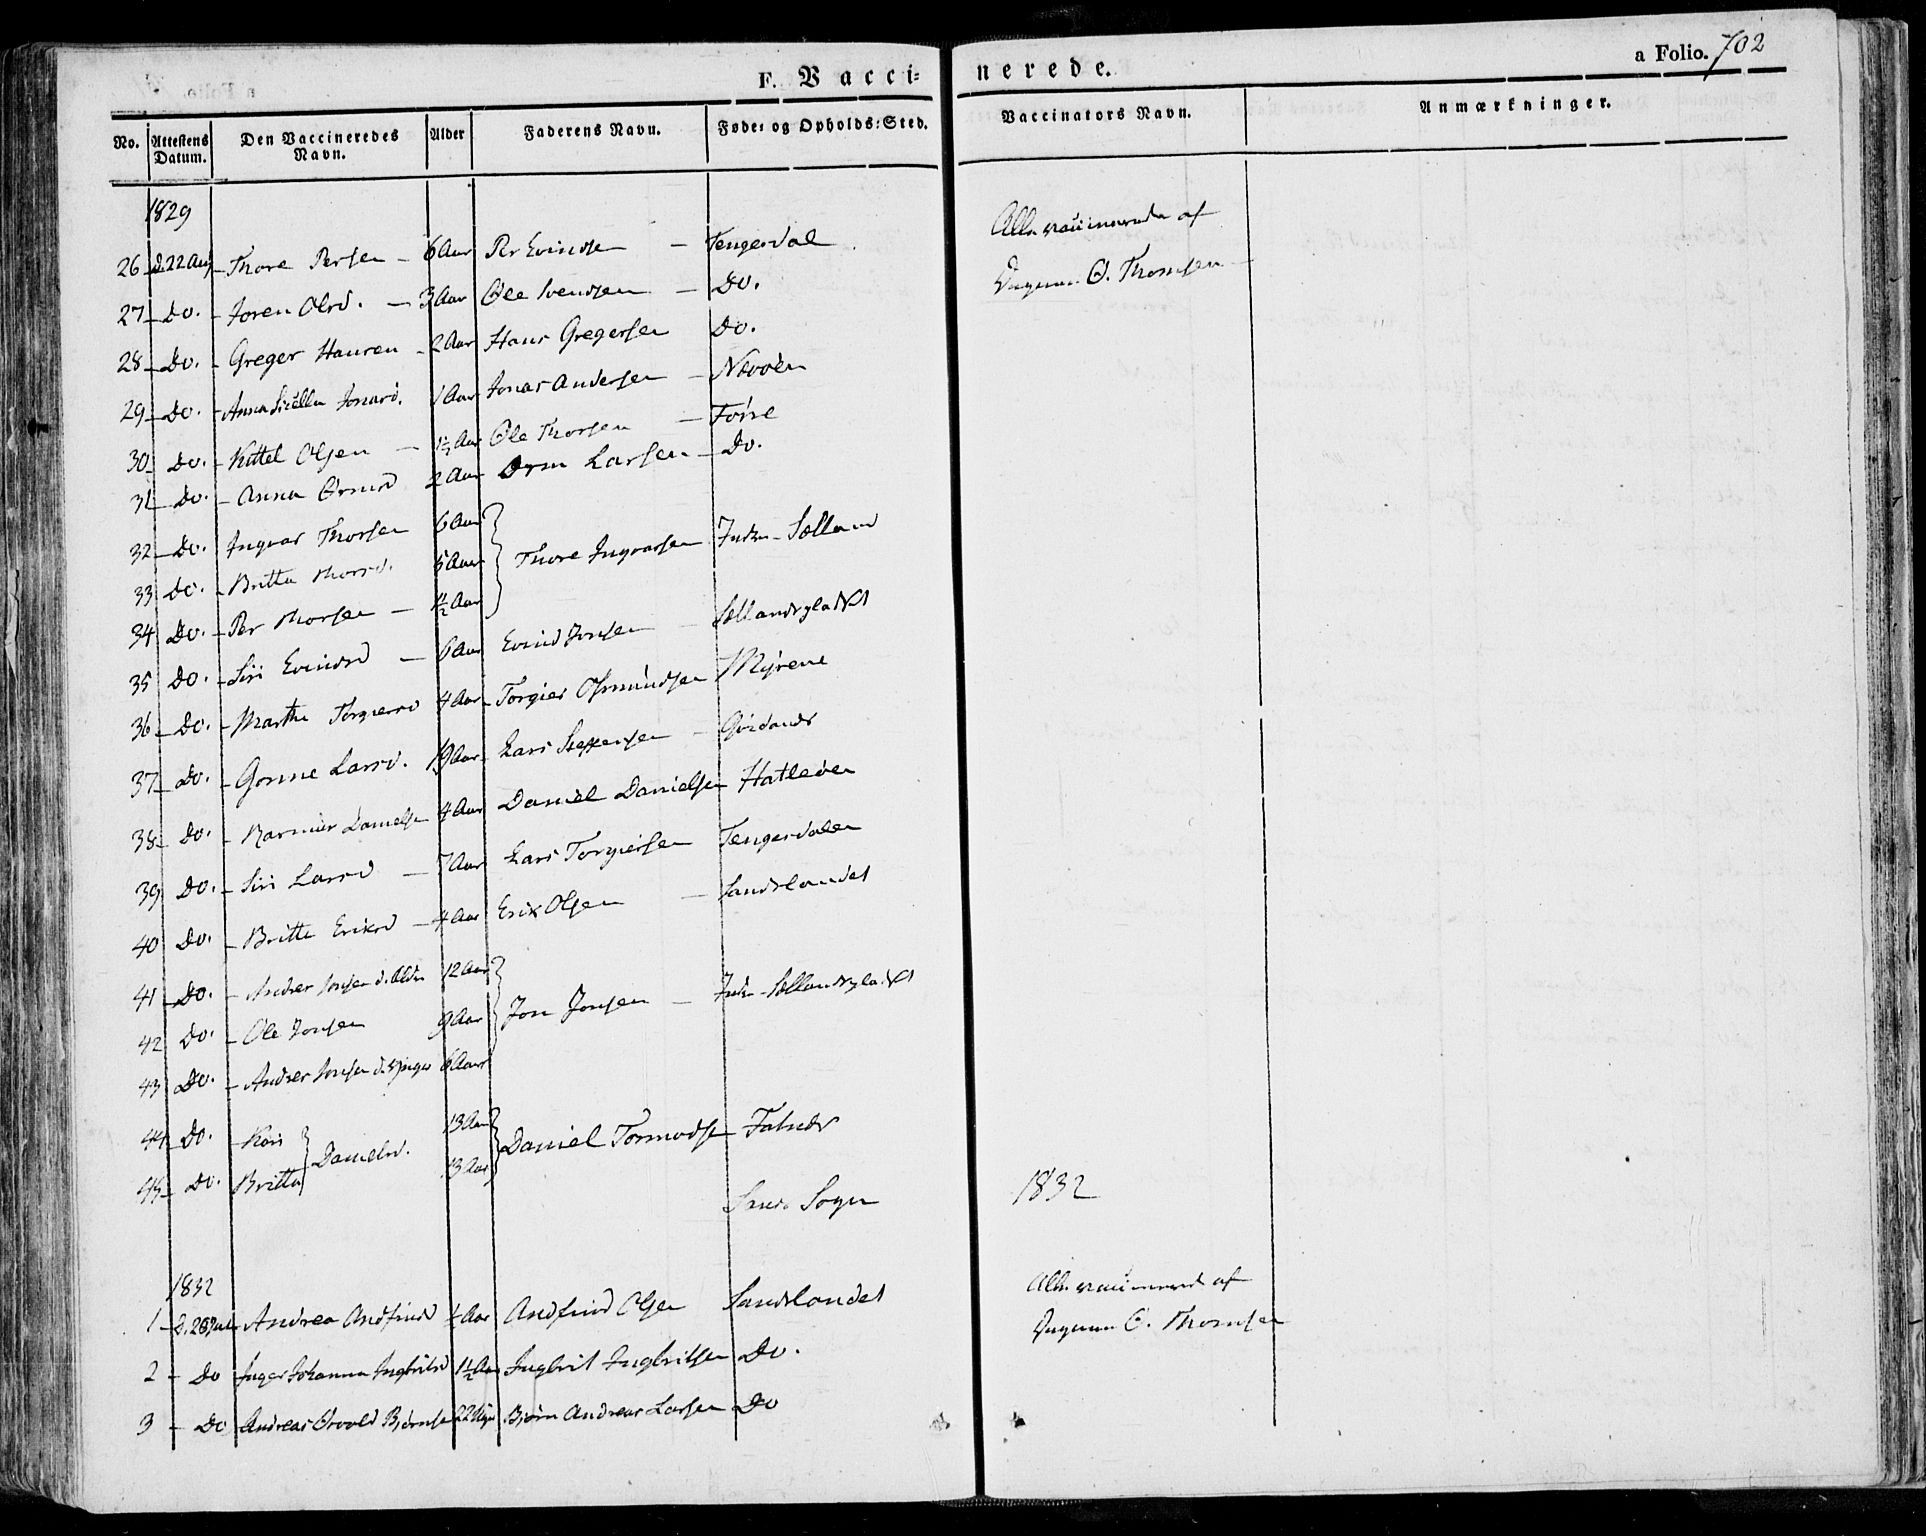 F. Vacci=
nerede.
a Folio. 702
No. Attestens Datum. Den Vaccineredes Navn. Alder Faderens Navn. Føde= og Opholds=Sted.
Vaccinators Navn. Anmærkninger.
1829
26 d. 22 Aug - Thore Persen - 6 Aar Per Evindsen - Tengesdal
Alle vaccinerede af
27 - Do. - Joren Olsd. - 3 Aar Ole Svendsen - Do.
O. Thomsen
28 - Do. - Greger Hansen - 2 Aar Hans Gregersen Do.
29 - Do. - Anna Sicilla Jonasd. 1 Aar Jonas Andersen -
30 - Do. - Kittel Olsen - 1½ Aar Ole Thorsen -
31 - Do. - Anna Ormsd 2 Aar Orm Larsen - Do.
32 - Do. Ingvar Thorsen 6 Aar
33 Do. - Britta Thorsd. 5 Aar Thore Ingvarsen Indre - Sælland
34 Do. - Per Thorsen - ½ Aar
35 Do. - Siri Evindsd - 6 Aar Evind Jonsen - Sællandspladset
36 - Do. - Marthe Torgiersd 4 Aar - Torgier Osmundsen Myrene
37 - Do. - Gorine Larsd. 19 Aar - Lars Steffensen -
38 - Do. - Rasmus Danielsen 4 Aar Daniel Danielsen Hatleøen
39 Do. - Siri Larsd - 7 Aar Lars Torgiersen Tengesdalen
40 Do. - Britte Eriksd - 4 Aar Erik Olsen - Sandslandet
41 - Do. - Andres Jonsen d. Ældre 12 Aar
42 Do. - Ole Jonsen 9 Aar Jon Jonsen - Indre - Sællandspladset
43 Do. - Andres Jonsen d. yngre 6 Aar
44 - Do. - Kari 13 Aar
Danielsd. Daniel Tormodsen Fatnes
45 - Do. Britta 13 Aar
Sands Sogn
1832
1832
Alle vaccinerede af
1 - d. 28 Juli Andrea Andfindsd ½ Aar Andfind Olsen Sandslandet
O. Thomsen
2 - Do Inger Johanna Ingbritsd 1½ Aar Ingbrit Ingbritsen Do.
3 - Do Andreas Bjørnsen 22 Uger Bjørn Andreas Larsen Do